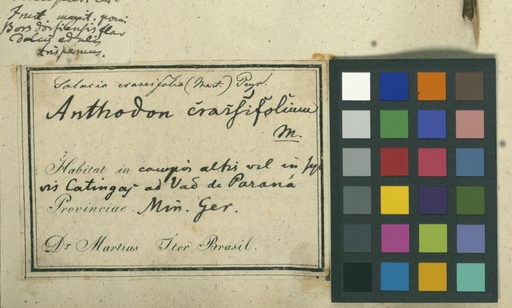 Fruct. magnit. pomi
Borsdorfiensis flav
dulcis edulis
trispermus.
Salacia crassifolia (Mart.) Peyr.
Anthodon crassifolium
M.
Habitat in campis altis vel in syl
vis Catingas ad Vao de Paraná
Provinciae Min. Ger.
Dr. Martius Iter Brasil.